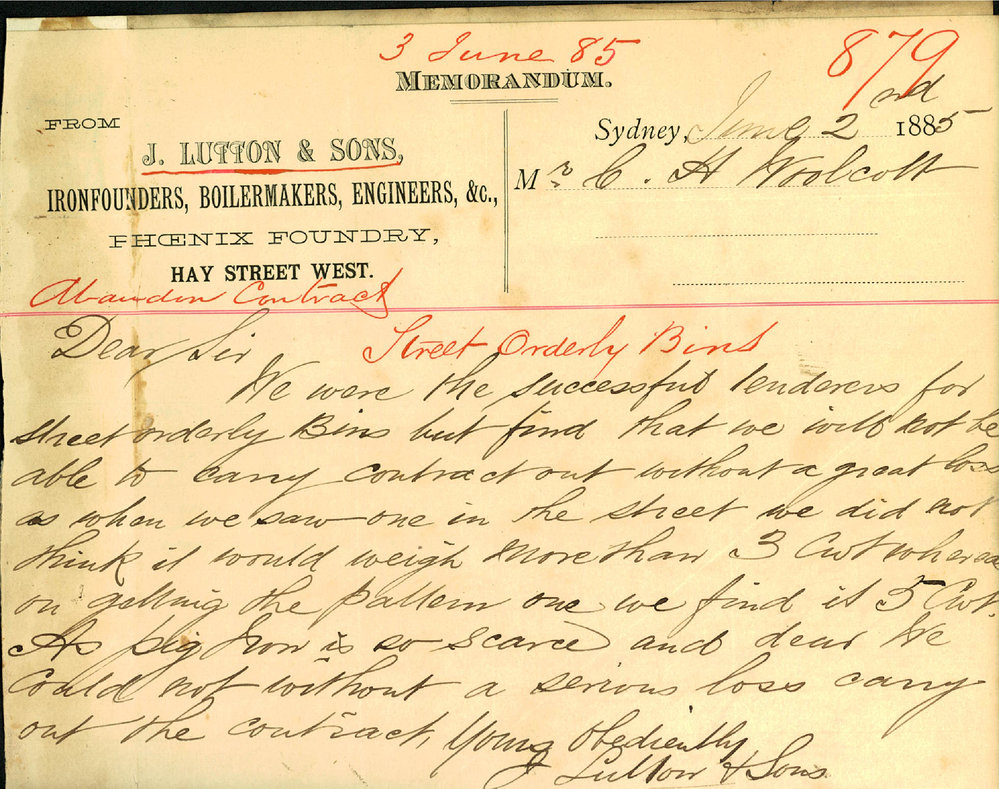 3 June 85
879
MEMORANDUM.
FROM
J. LUTTON & SONS,
IRONFOUNDERS, BOILERMAKERS, ENGINEERS, &c.,
PHŒNIX FOUNDRY,
HAY STREET WEST.
Sydney, June 2nd 1885
Mr C. H Woolcott
Abandon Contract
Dear Sir
Street Orderly Bins
We were the successful tenderers for
street orderly Bins but find that we will not be
able to carry contract out without a great loss
as when we saw one in the street we did not
think it would weigh more than 3 Cwt whereas
on getting the pattern one we find it 5 Cwt.
As pig Iron is so scarce and dear We
Could not without a serious loss carry
out the contract, Yours Obediently
J Lutton & Sons